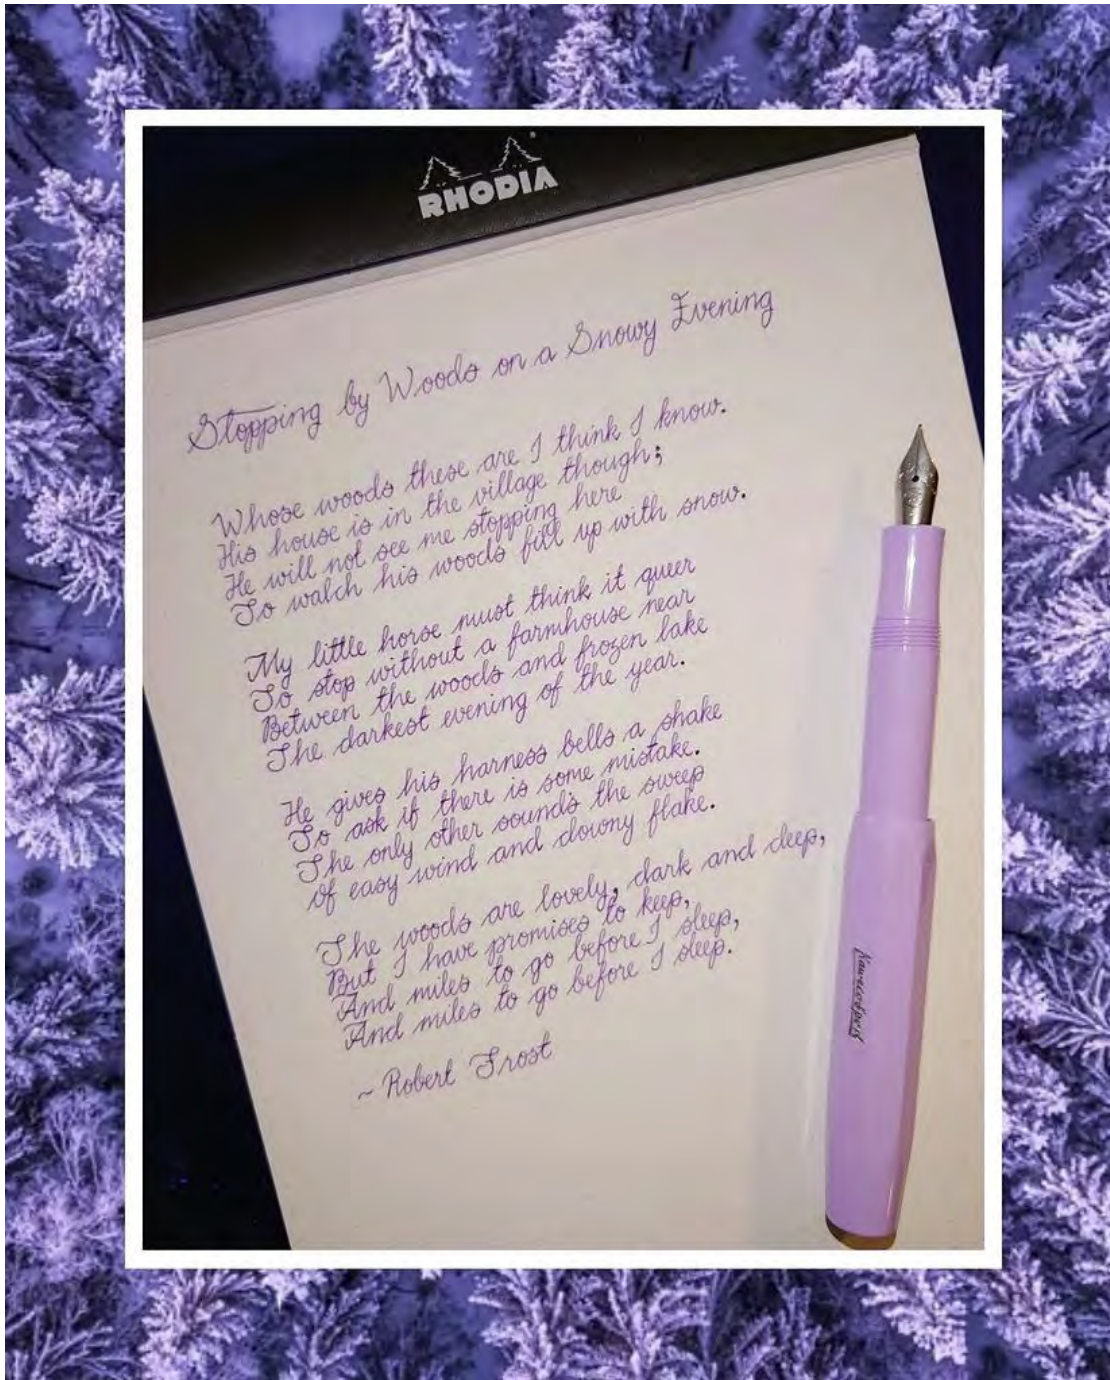 RHODIA
Stopping by Woods on a Snowy Evening
Whose woods these are I think I know.
His house is in the village though;
He will not see me stopping here
To watch his woods fill up with snow.
My little horse must think it queer
To stop without a farmhouse near
Between the woods and frozen lake
The darkest evening of the year.
He gives his harness bells a shake
To ask if there is some mistake.
The only other sound's the sweep
Of easy wind and downy flake.
The woods are lovely, dark and deep,
But I have promises to keep,
And miles to go before I sleep,
And miles to go before I sleep.
~ Robert Frost
Kaweco Sport